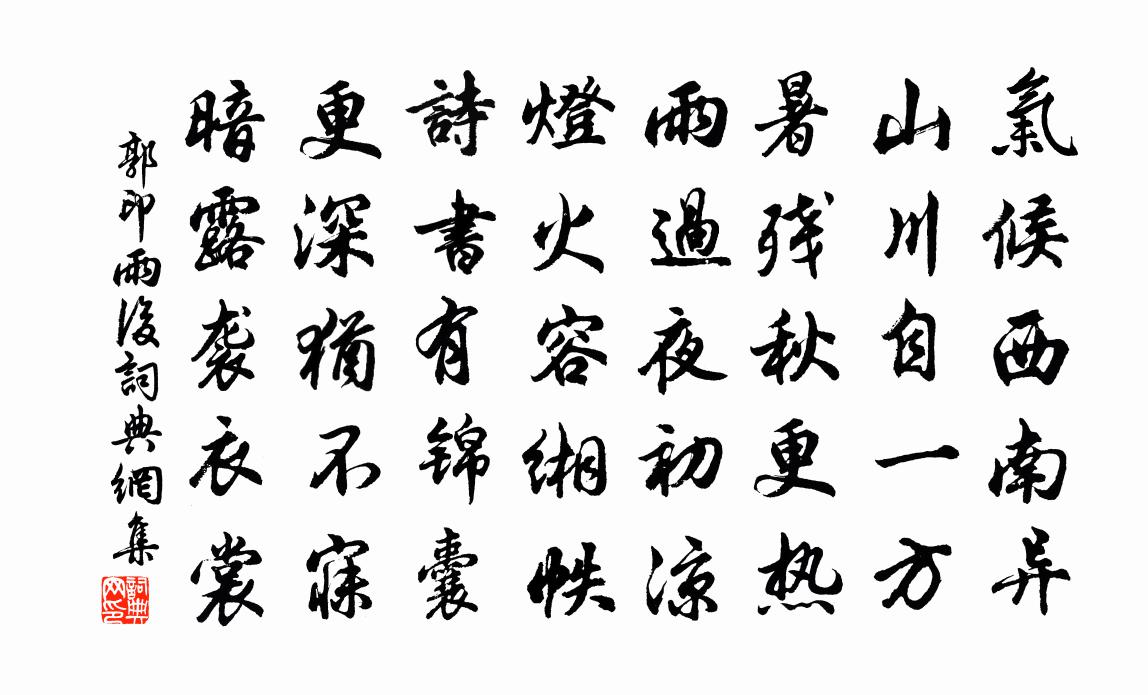 氣候西南异
山川自一方
暑残秋更热
雨過夜初凉
燈火容缃帙
詩書有锦囊
更深猶不寐
暗露袭衣裳
郭印雨後詞典網集
詞典網印